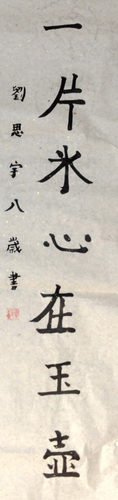 一片氷心在玉壺
劉思宇八歲書